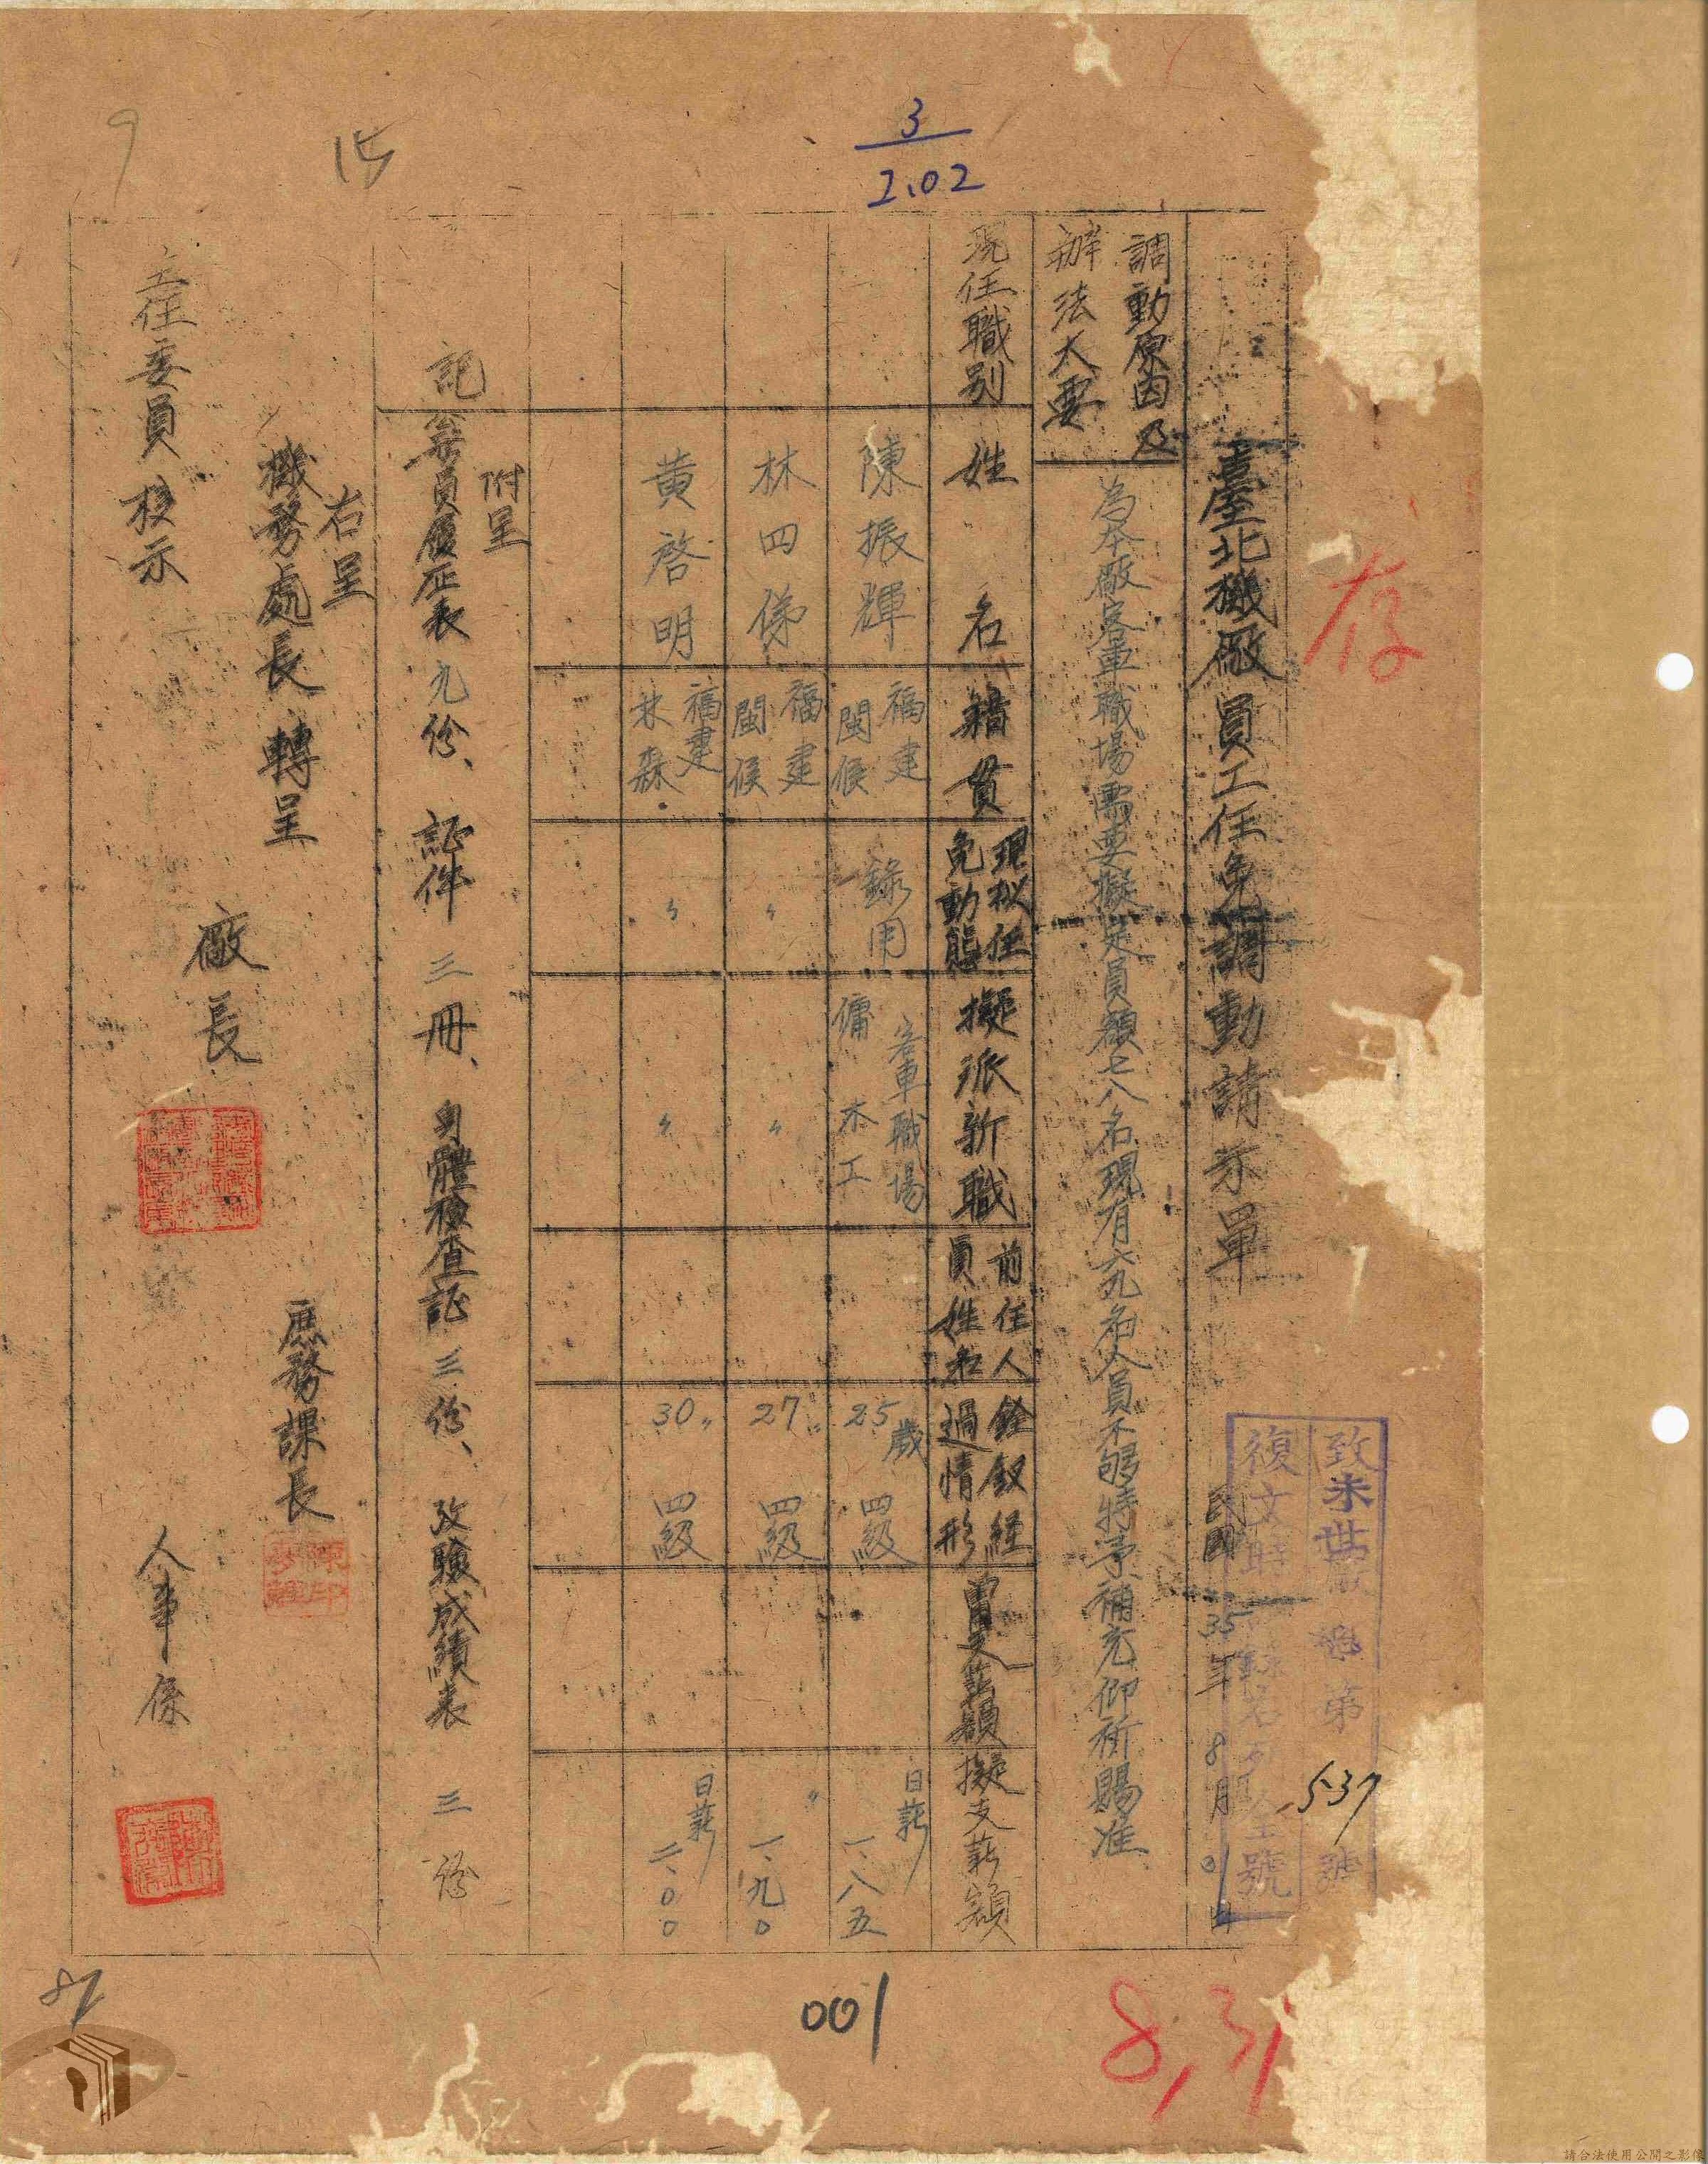 存
臺北機廠員工任免調動請示單
致未世廠 第537號
復文時 號
民國35年8月31日
調動原因及
辦法大要
為本廠客車職場需要擬定員額七八名現有六九名人員不够特予補充仰祈賜准
現任職別
姓名
籍貫
現拟任
免動態
擬派新職
前任人
員姓名
銓叙経
過情形
曽支薪額
擬支薪額
陳振輝
福建
閩侯
錄用
客車職場
傭木工
25歲 四級
日薪
一、八五
林四俤
福建
閩侯
〃
〃
27〃 四級
〃
一、九〇
黃啓明
福建
林森
〃
〃
30〃 四級
日薪
二、〇〇
附呈
記
員履歴表九份、証件三冊、身體檢查証三份、攷驗成績表三份
右呈
機務處長轉呈
主任委員核示
廠長
庶務課長
人事係
3
2.02
15
9
001
8,31
87
請合法使用公開之影像